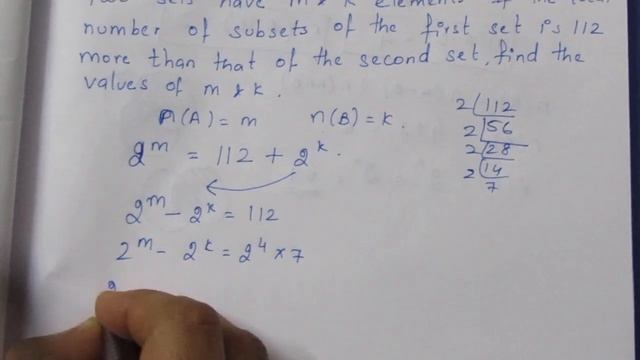 sets have m & k elements If the total
number of subsets of the first set is 112
more than that of the second set, find the
values of m & k.
n(A) = m n(B) = k.
2^m = 112 + 2^k.
2^m - 2^k = 112
2^m - 2^k = 2^4 × 7
2
2 | 112
2 | 56
2 | 28
2 | 14
7